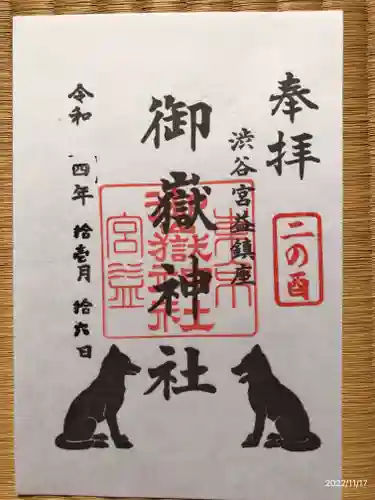 奉拝
二の酉
渋谷宮益鎮座
御嶽神社
宮益
令和四年拾壱月拾六日
2022/11/17